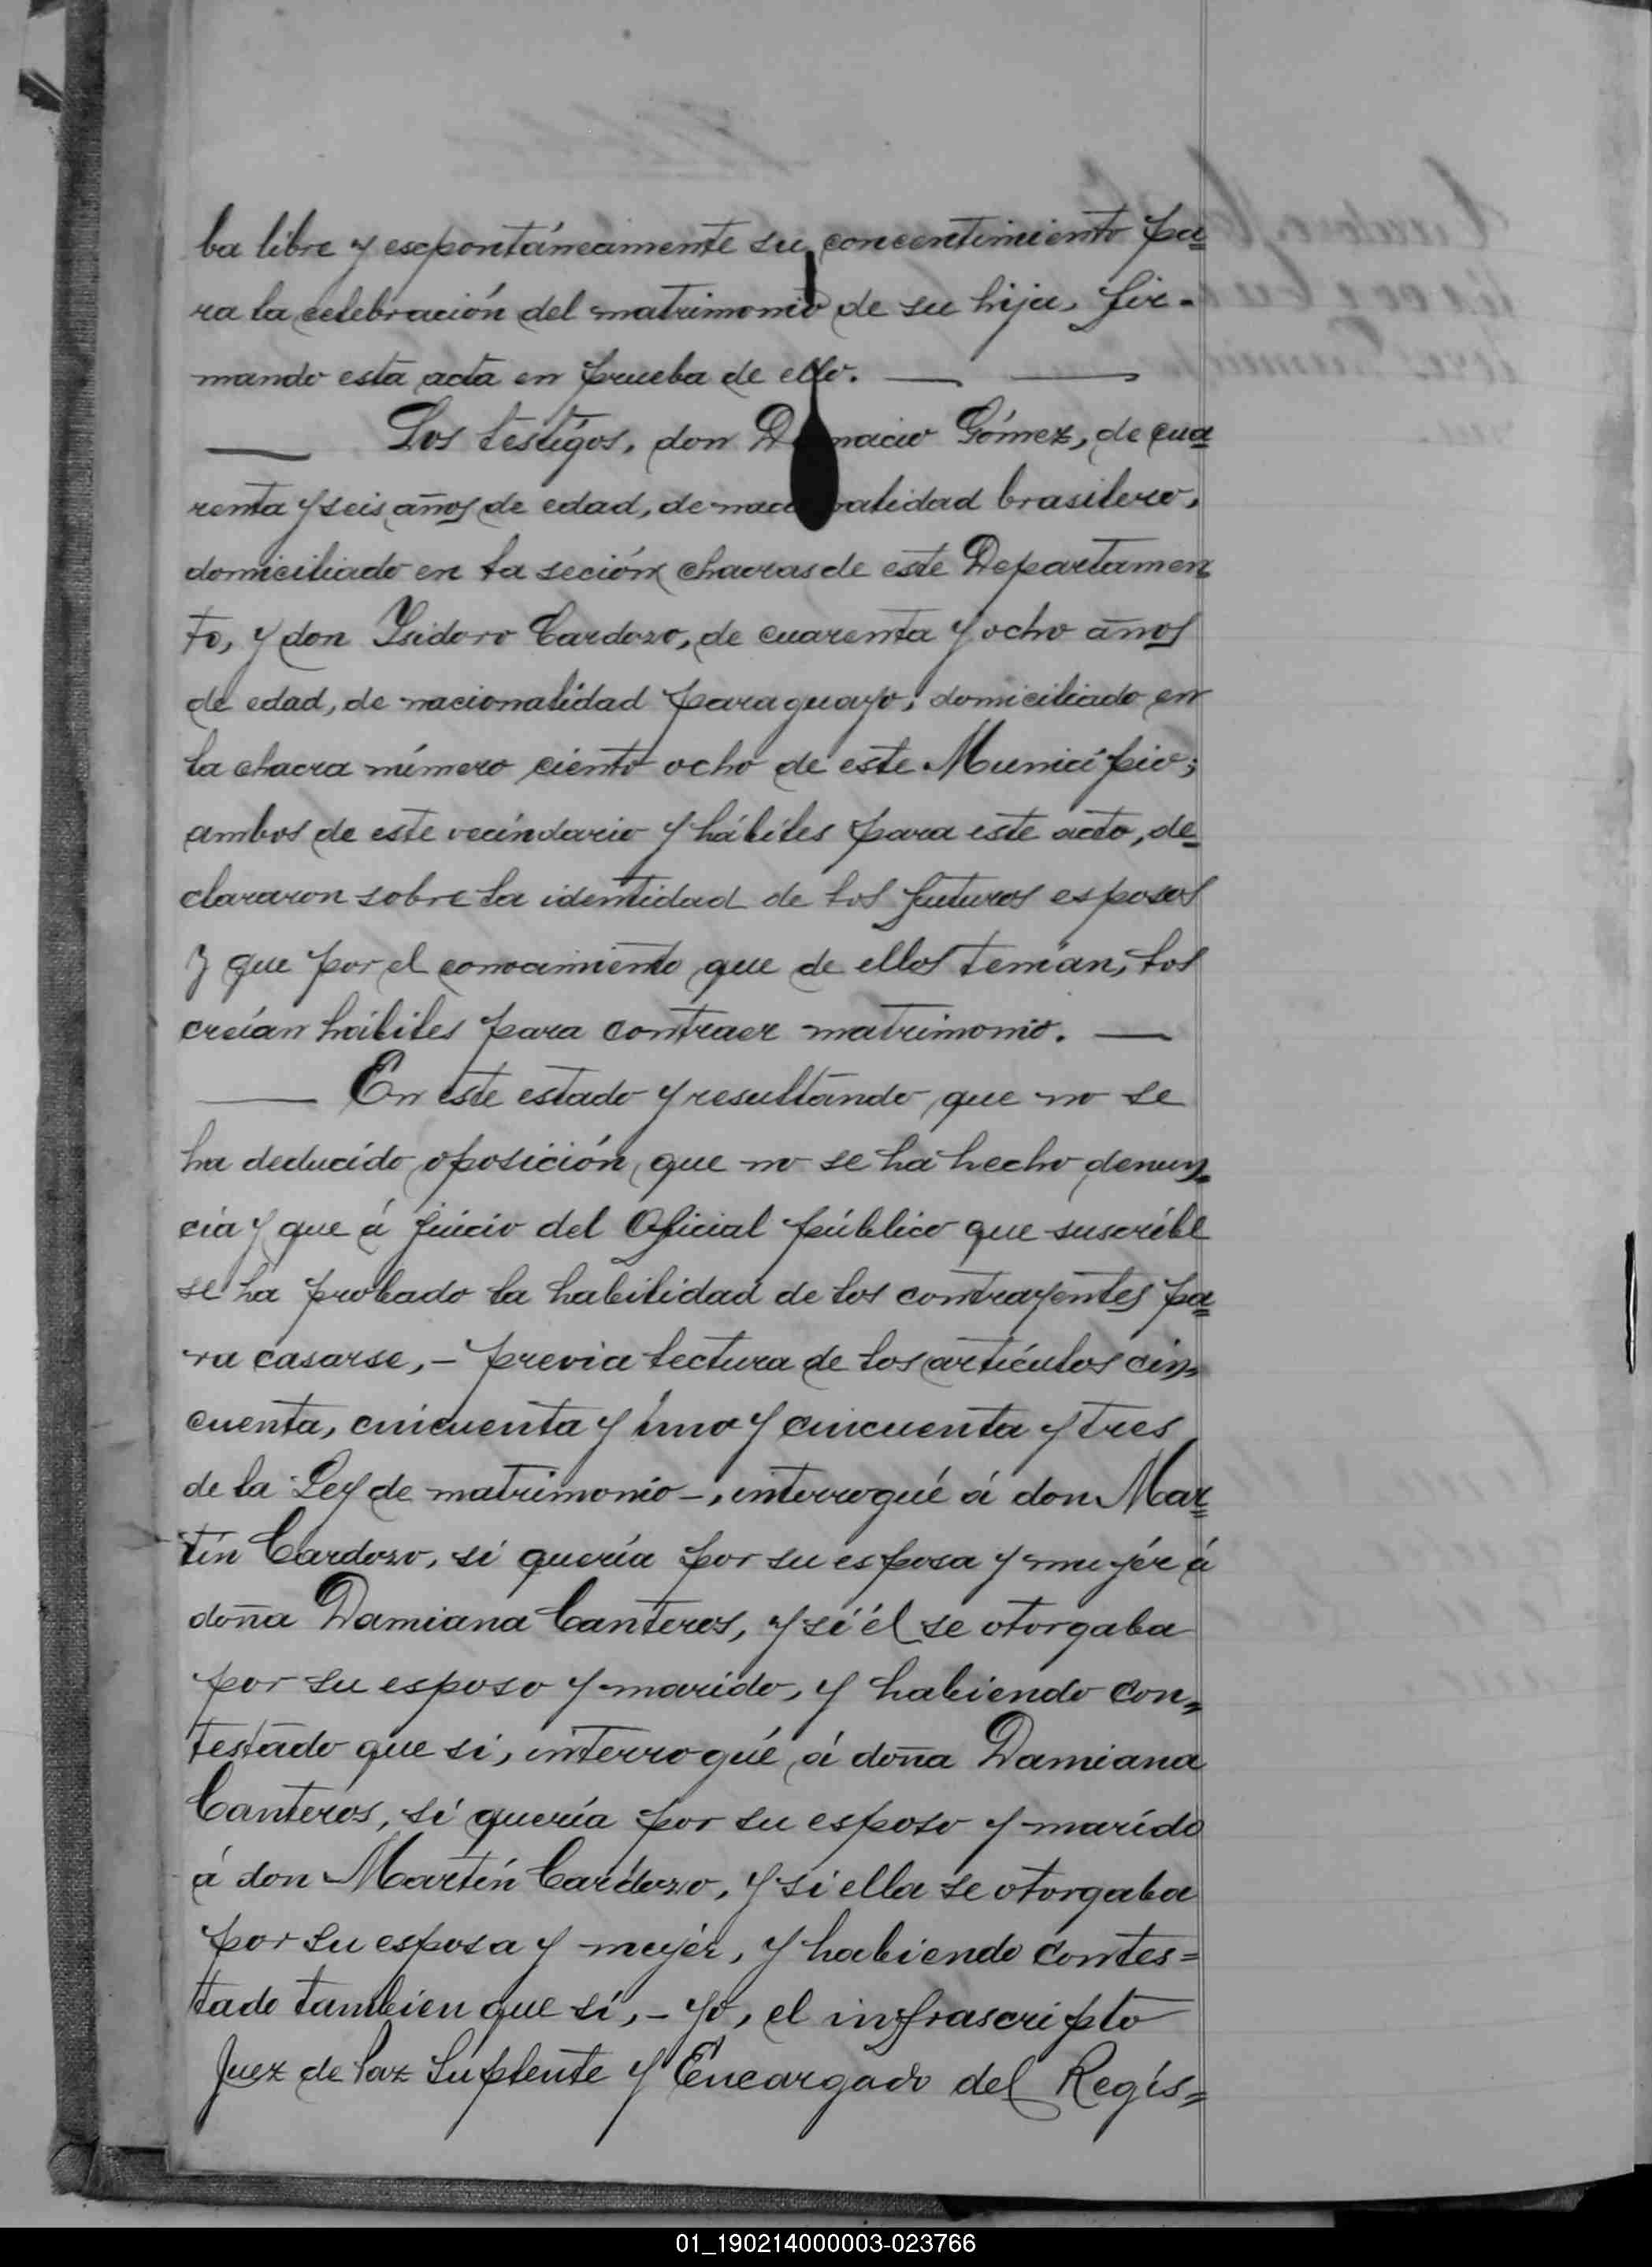 ba libre y esxpontáneamente su concentimiento pa=
ra la celebración del matrimonio de su hija, fir-
mando esta acta en prueba de ello. — —
— Los testigos, don Gómez, de cua=
renta y seis años de edad, de nacionalidad brasilero,
domiciliado en la seción chacras de este Departamen
to, y don Ysidoro Cardozo, de cuarenta y ocho años
de edad, de nacionalidad paraguayo, domiciliado en
la chacra número ciento ocho de este Municipio;
ambos de este vecindario y hábiles para este acto, de=
clararon sobre la identidad de los futuros esposos
y que por el conocimiento que de ellos tenían, los
creían hábiles para contraer matrimonio. —
— En este estado y resultando que no se
ha deducido oposición, que no se ha hecho denun=
cia y que á juicio del Oficial público que suscribe
se ha probado la habilidad de los contrayentes pa=
ra casarse, - previa lectura de los artículos cin=
cuenta, cincuenta y uno y cincuenta y tres
de la Ley de matrimonio -, interrogué á don Mar=
tín Cardozo, si quería por su esposa y mujér á
doña Damiana Canteros, y si él se otorgaba
por su esposo y marido, y habiendo con=
testado que si, interrogué á doña Damiana
Canteros, si quería por su esposo y marido
á don Martín Cardozo, y si ella se otorgaba
por su esposa y mujér, y habiendo contes=
tado tambien que si, - yo, el infrascripto
Juez de Paz Suplente y Encargado del Regis=
01_190214000003-023766